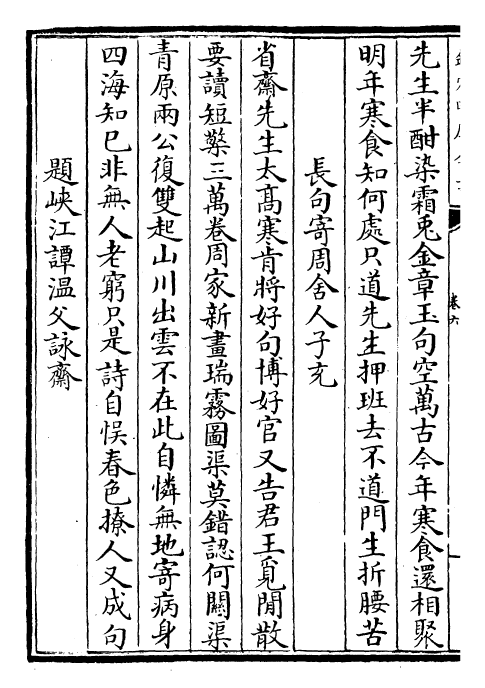 卷六
先生半酣染霜兎金章玉句空萬古今年寒食還相聚
明年寒食知何處只道先生押班去不道門生折腰苦
長句寄周舍人子充
省齋先生太髙寒肯將好句博好官又告君王覓閒散
要讀短檠三萬卷周家新畫瑞霧圖渠莫錯認何闗渠
青原兩公復雙起山川出雲不在此自憐無地寄病身
四海知已非無人老窮只是詩自悮春色撩人又成句
題峽江譚温父詠齋